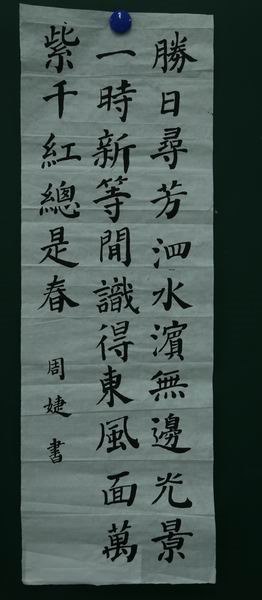 勝日尋芳泗水濱無邊光景
一時新等閒識得東風面萬
紫千紅總是春
周婕書